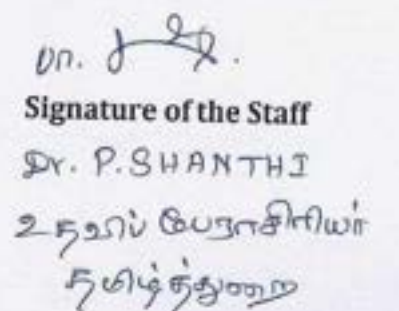 Signature of the Staff
Dr. P. SHANTHI
உதவிப் பேராசிரியர்
தமிழ்த்துறை